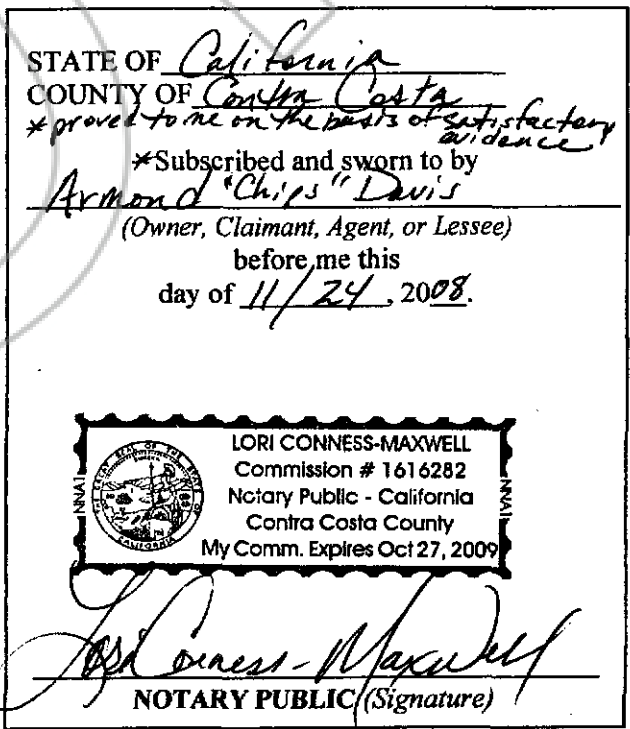 STATE OF California
COUNTY OF Contra Costa
* proved to me on the basis of satisfactory
evidence
*Subscribed and sworn to by
Armond "Chips" Davis
(Owner, Claimant, Agent, or Lessee)
before me this
day of 11/24, 2008.
LORI CONNESS-MAXWELL
Commission # 1616282
Notary Public - California
Contra Costa County
My Comm. Expires Oct 27, 2009
NNA1
NNA1
CALIFORNIA
Lori Conness-Maxwell
NOTARY PUBLIC (Signature)